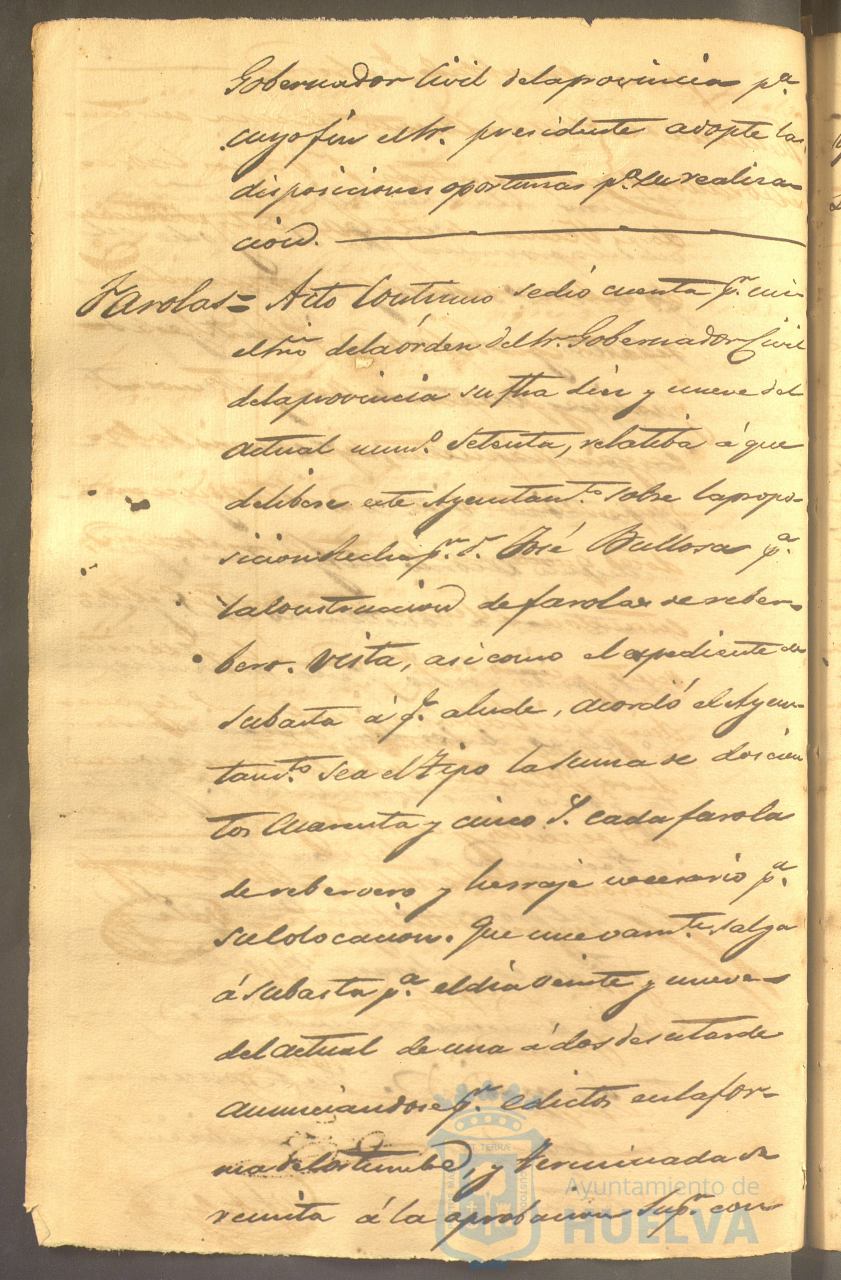 Gobernador Civil dela provincia pª
cuyo fin el Sr. presidente adopte las
disposiciones oportunas pª su realiza-
cion.
Farolas = Acto Continuo se dió cuenta pr. mi
el Srio dela órden del Sr. Gobernador Civil
dela provincia su fha diez y nueve del
actual numº. Setenta, relatiba á que
delibere este Ayuntamto. sobre la propo-
sicion hecha pr. Dn. José Bullosa pª.
la Construccion de farolas de reber-
bero. Vista, asi como el expediente de
subasta á q. alude, acordó el Ayun-
tamto. sea el Tipo la suma de doscien
tos Cuarenta y cinco rs. cada farola
de reberbero y herraje necesario pª.
su Colocacion. Que nuevamte. salga
á subasta pª. el dia veinte y nueve
del actual de una á dos de su tarde
anunciandose pr. edictos en la for-
ma de Costumbre, y terminada se
remita á la aprobacion supr. con
Ayuntamiento de
HUELVA